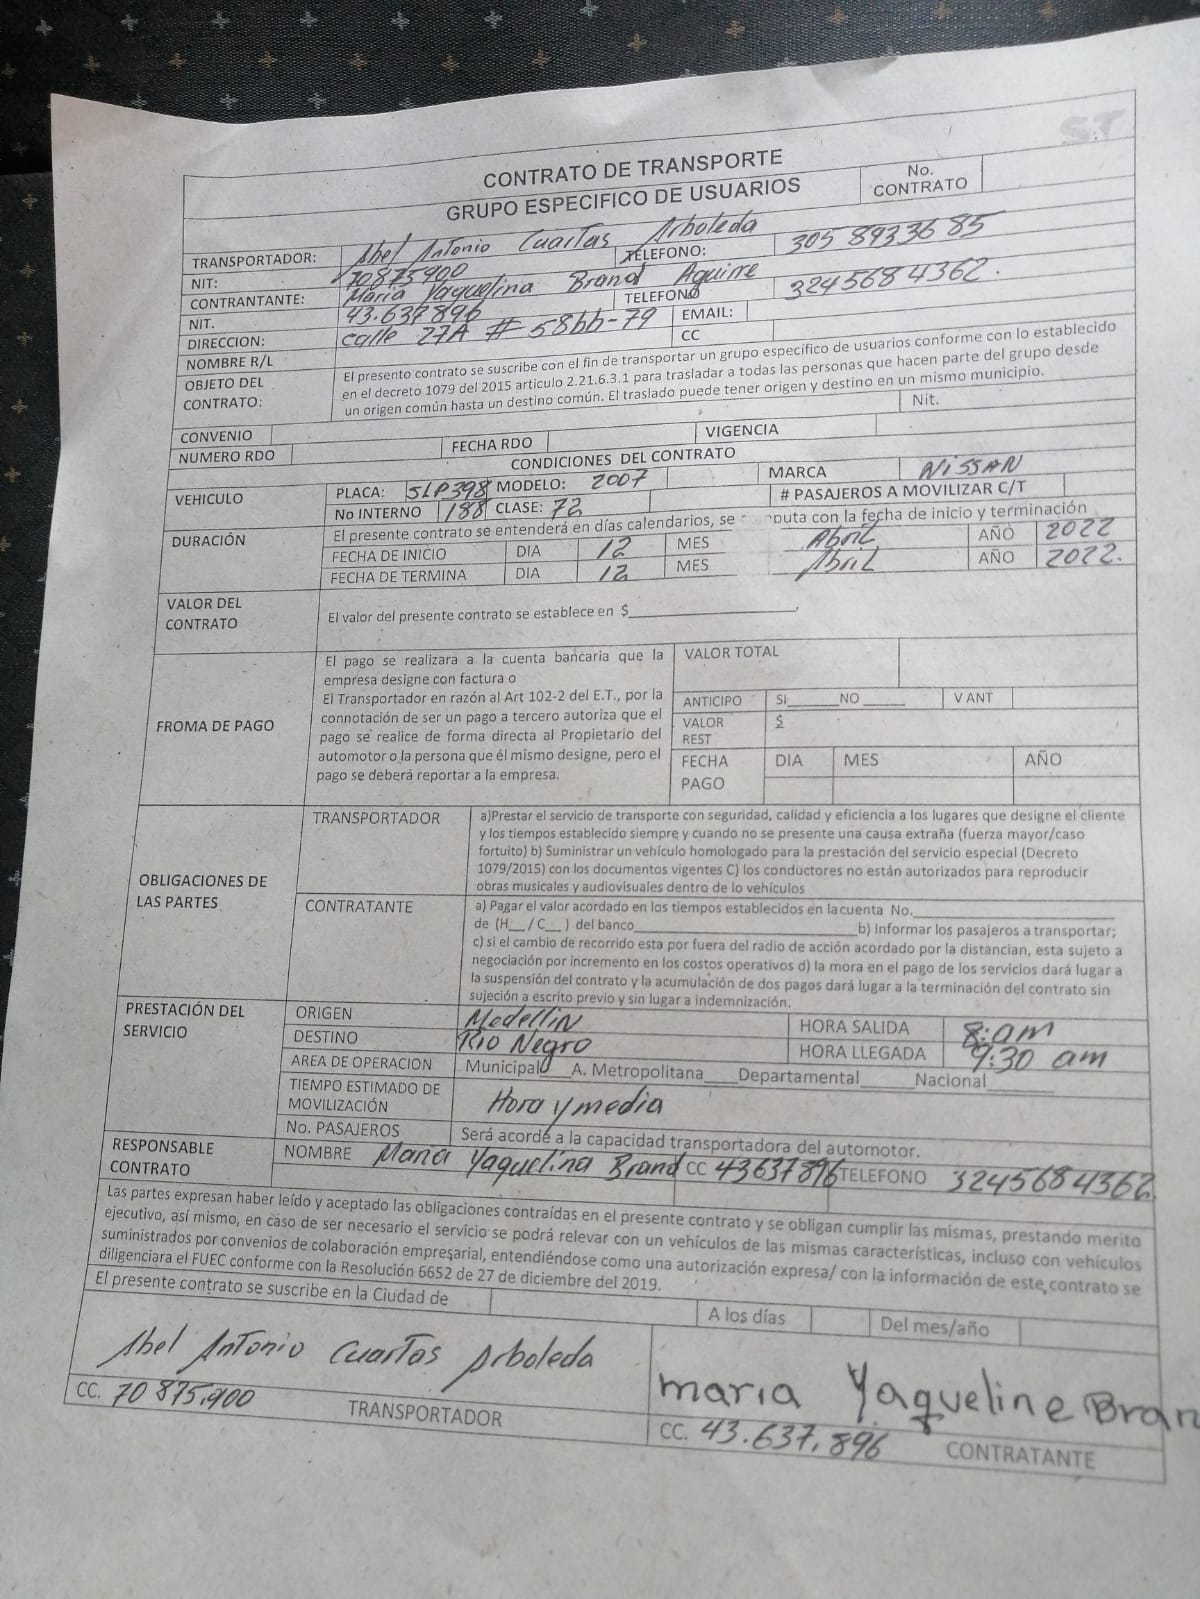 ST
CONTRATO DE TRANSPORTE
GRUPO ESPECIFICO DE USUARIOS
No. CONTRATO
TRANSPORTADOR: Abel Antonio Cuartas Arboleda TELEFONO: 305 8933685
NIT: 70875900
CONTRANTANTE: Maria Yaquelina Brand Aguirre TELEFONO 3245684362.
NIT. 43.637896 EMAIL:
DIRECCION: calle 27A # 58bb-79 CC
NOMBRE R/L
OBJETO DEL CONTRATO:
El presento contrato se suscribe con el fin de transportar un grupo especifico de usuarios conforme con lo establecido
en el decreto 1079 del 2015 articulo 2.21.6.3.1 para trasladar a todas las personas que hacen parte del grupo desde
un origen común hasta un destino común. El traslado puede tener origen y destino en un mismo municipio.
CONVENIO Nit.
NUMERO RDO FECHA RDO VIGENCIA
CONDICIONES DEL CONTRATO
VEHICULO PLACA: SLP398 MODELO: 2007 MARCA NISSAN
No INTERNO 188 CLASE: 72 # PASAJEROS A MOVILIZAR C/T
DURACIÓN El presente contrato se entenderá en días calendarios, se puta con la fecha de inicio y terminación
FECHA DE INICIO DIA 12 MES Abril AÑO 2022
FECHA DE TERMINA DIA 12 MES Abril AÑO 2022.
VALOR DEL CONTRATO El valor del presente contrato se establece en $
FROMA DE PAGO
El pago se realizara a la cuenta bancaria que la
empresa designe con factura o
El Transportador en razón al Art 102-2 del E.T., por la
connotación de ser un pago a tercero autoriza que el
pago se realice de forma directa al Propietario del
automotor o la persona que él mismo designe, pero el
pago se deberá reportar a la empresa.
VALOR TOTAL
ANTICIPO SI______NO _____ V ANT
VALOR REST $
FECHA PAGO DIA MES AÑO
OBLIGACIONES DE LAS PARTES
TRANSPORTADOR
a)Prestar el servicio de transporte con seguridad, calidad y eficiencia a los lugares que designe el cliente
y los tiempos establecido siempre y cuando no se presente una causa extraña (fuerza mayor/caso
fortuito) b) Suministrar un vehículo homologado para la prestación del servicio especial (Decreto
1079/2015) con los documentos vigentes C) los conductores no están autorizados para reproducir
obras musicales y audiovisuales dentro de lo vehículos
CONTRATANTE
a) Pagar el valor acordado en los tiempos establecidos en la cuenta No.
de (H__/ C__ ) del banco____ b) Informar los pasajeros a transportar;
c) si el cambio de recorrido esta por fuera del radio de acción acordado por la distancian, esta sujeto a
negociación por incremento en los costos operativos d) la mora en el pago de los servicios dará lugar a
la suspensión del contrato y la acumulación de dos pagos dará lugar a la terminación del contrato sin
sujeción a escrito previo y sin lugar a indemnización.
PRESTACIÓN DEL SERVICIO
ORIGEN Medellin HORA SALIDA 8:am
DESTINO Rio Negro HORA LLEGADA 9:30 am
AREA DE OPERACION Municipal___A. Metropolitana____Departamental______Nacional
TIEMPO ESTIMADO DE MOVILIZACIÓN Hora y media
No. PASAJEROS Será acorde a la capacidad transportadora del automotor.
RESPONSABLE CONTRATO NOMBRE Maria Yaquelina Brand CC 43637896 TELEFONO 3245684362
Las partes expresan haber leído y aceptado las obligaciones contraídas en el presente contrato y se obligan cumplir las mismas, prestando merito
ejecutivo, así mismo, en caso de ser necesario el servicio se podrá relevar con un vehículos de las mismas características, incluso con vehículos
suministrados por convenios de colaboración empresarial, entendiéndose como una autorización expresa/ con la información de este contrato se
diligenciara el FUEC conforme con la Resolución 6652 de 27 de diciembre del 2019.
El presente contrato se suscribe en la Ciudad de A los días Del mes/año
Abel Antonio Cuartas Arboleda
maria Yaqueline Bran
CC. 70 875.900 TRANSPORTADOR
CC. 43.637.896 CONTRATANTE